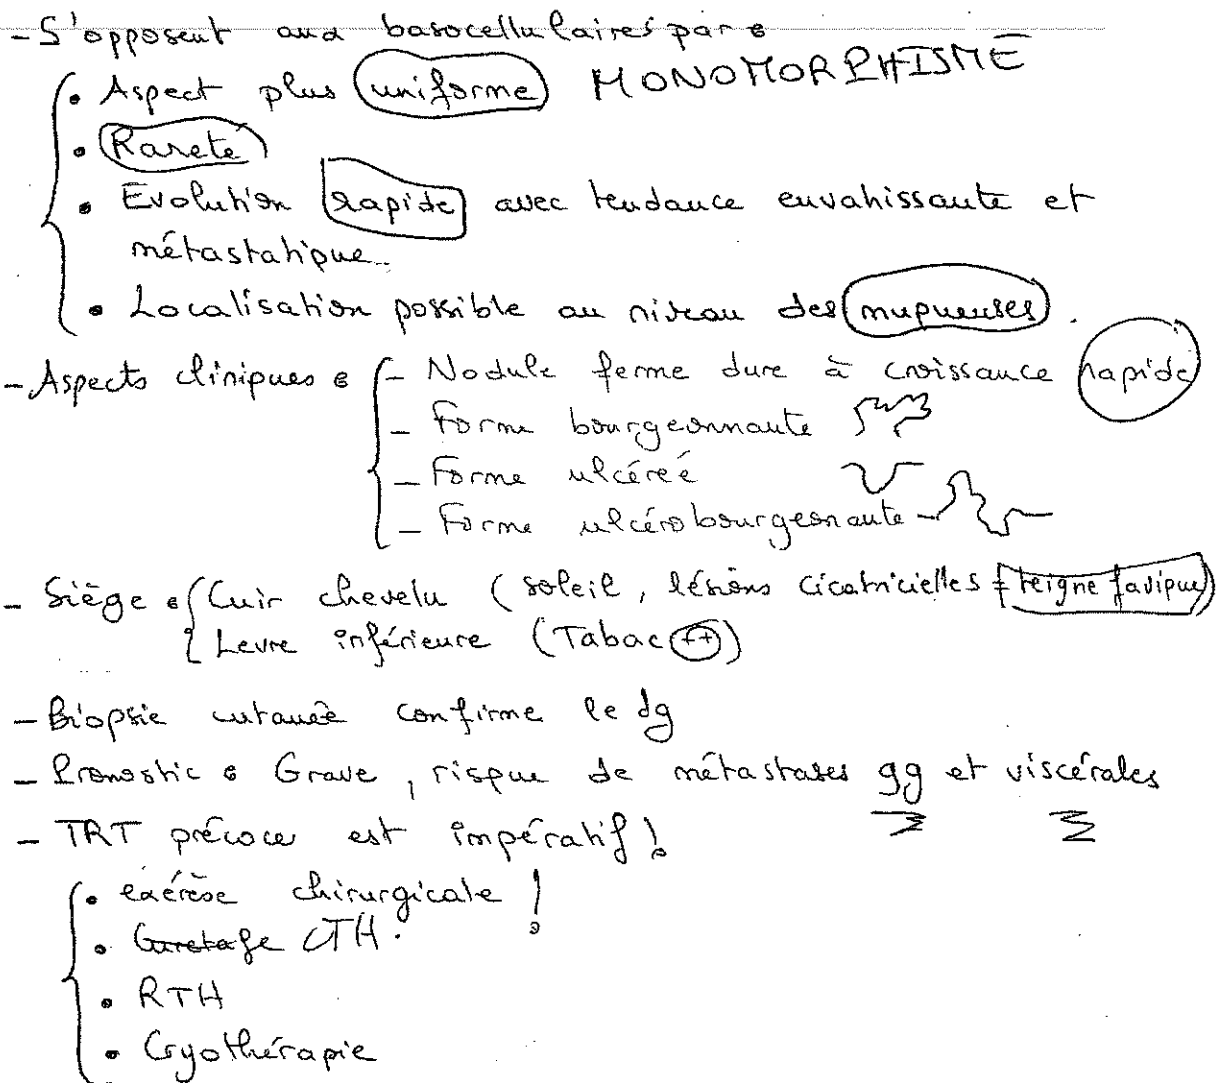 - S'opposent aux basocellulaires par :
• Aspect plus uniforme MONOMORPHISME
• Rareté
• Evolution rapide avec tendance envahissante et
métastatique.
• Localisation possible au niveau des muqueuses.
- Aspects cliniques : - Nodule ferme dure à croissance rapide
- Forme bourgeonnante
- Forme ulcérée
- Forme ulcérobourgeonante
- Siège : Cuir chevelu (soleil, lésions cicatricielles + teigne favique)
Levre inférieure (Tabac ++)
- Biopsie cutanée confirme le dg
- Pronostic : Grave, risque de métastases gg et viscérales
- TRT précoce est impératif !
• exérèse chirurgicale !
• Curetage CTH.
• RTH
• Cryothérapie